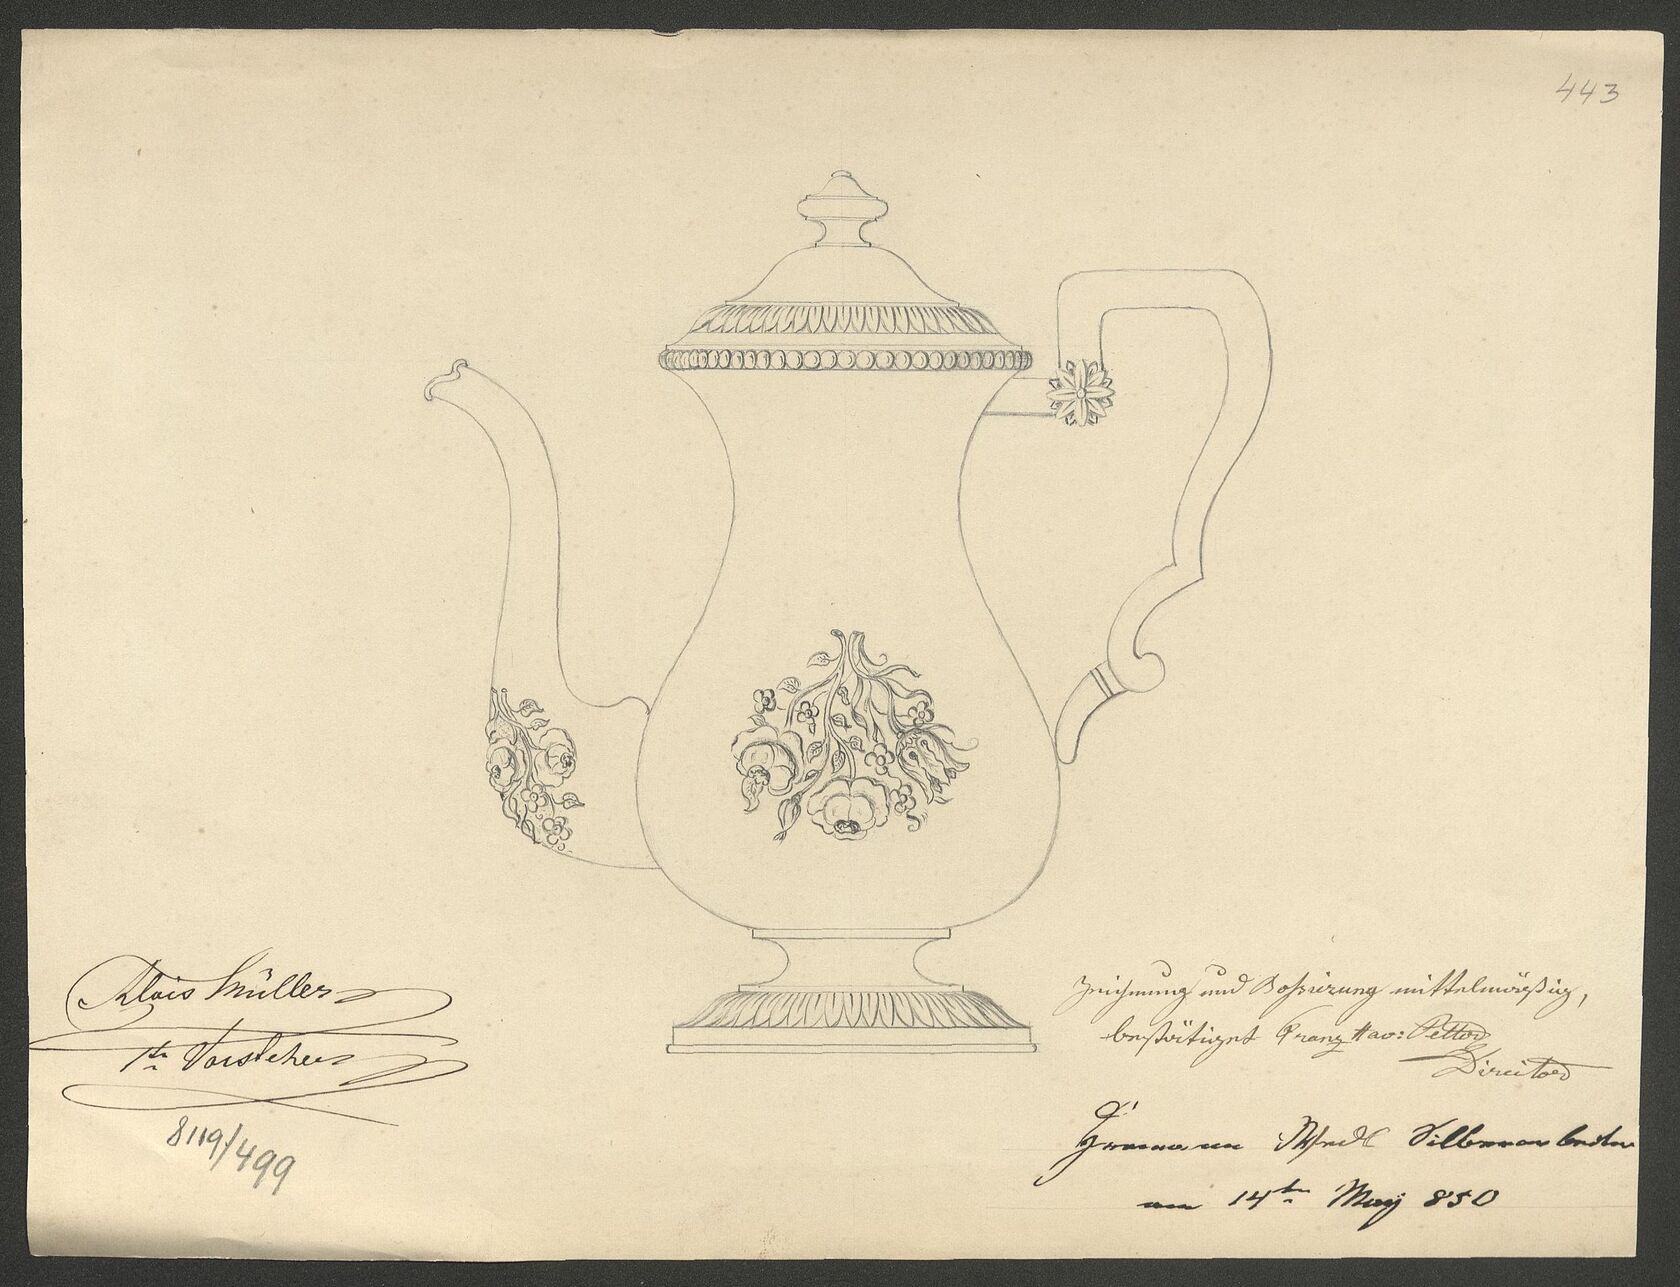 443
Alois Müller
1ter Vorsteher
8119/499
Zeichnung und Bossirung mittelmäßig,
bestätiget Franz Xav: Pettor
Director
Silberarbeiter
am 14ten May 850